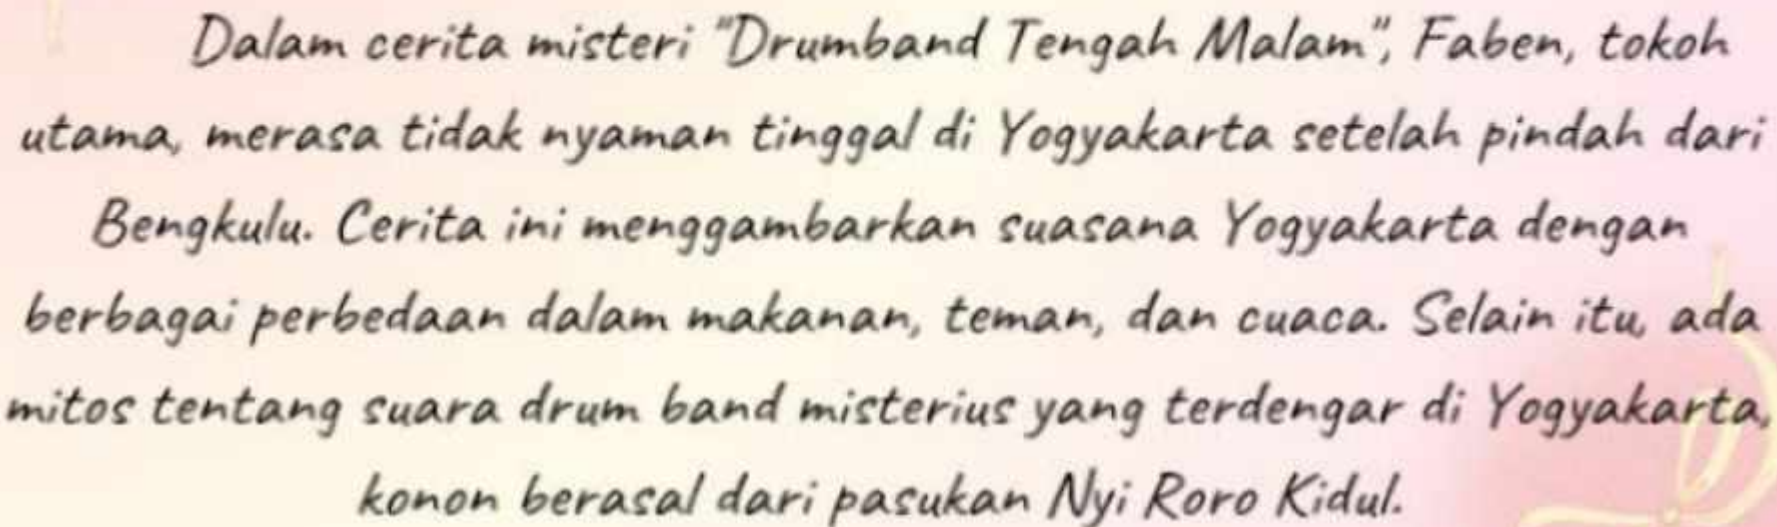 Dalam cerita misteri "Drumband Tengah Malam", Faben, tokoh
utama, merasa tidak nyaman tinggal di Yogyakarta setelah pindah dari
Bengkulu. Cerita ini menggambarkan suasana Yogyakarta dengan
berbagai perbedaan dalam makanan, teman, dan cuaca. Selain itu, ada
mitos tentang suara drum band misterius yang terdengar di Yogyakarta,
konon berasal dari pasukan Nyi Roro Kidul.